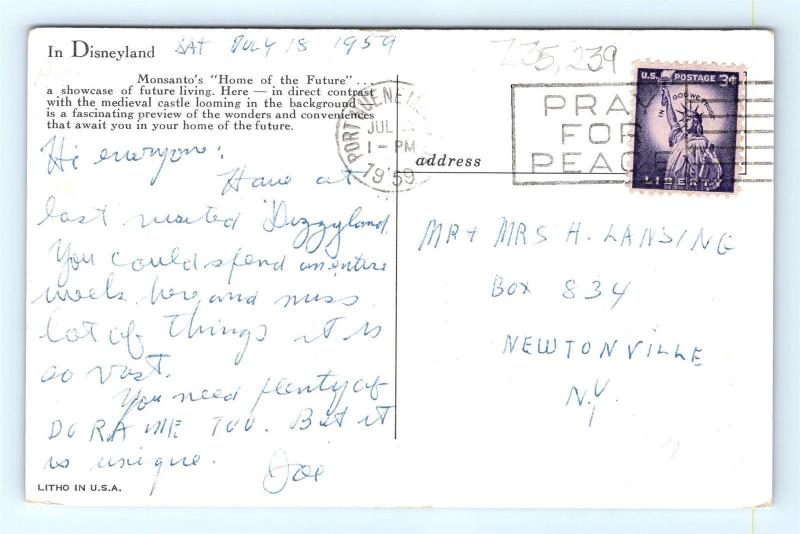 In Disneyland
SAT JULY 18 1959
Z35,239
Monsanto's "Home of the Future" . . .
a showcase of future living. Here — in direct contrast
with the medieval castle looming in the background —
is a fascinating preview of the wonders and conveniences
that await you in your home of the future.
Hi everyone:
Have at
last visited "Dizzyland.
You could spend an entire
week here and miss
lot of things it is
so vast.
You need plenty of
DO RA ME TOO. But it
is unique.
Joe
LITHO IN U.S.A.
PORT HUENEME
JUL
1 - PM
1959
PRAY
FOR
PEACE
U.S. POSTAGE 3¢
IN GOD WE TRUST
LIBERTY
address
MR + MRS H. LANSING
BOX 834
NEWTONVILLE
N.Y.